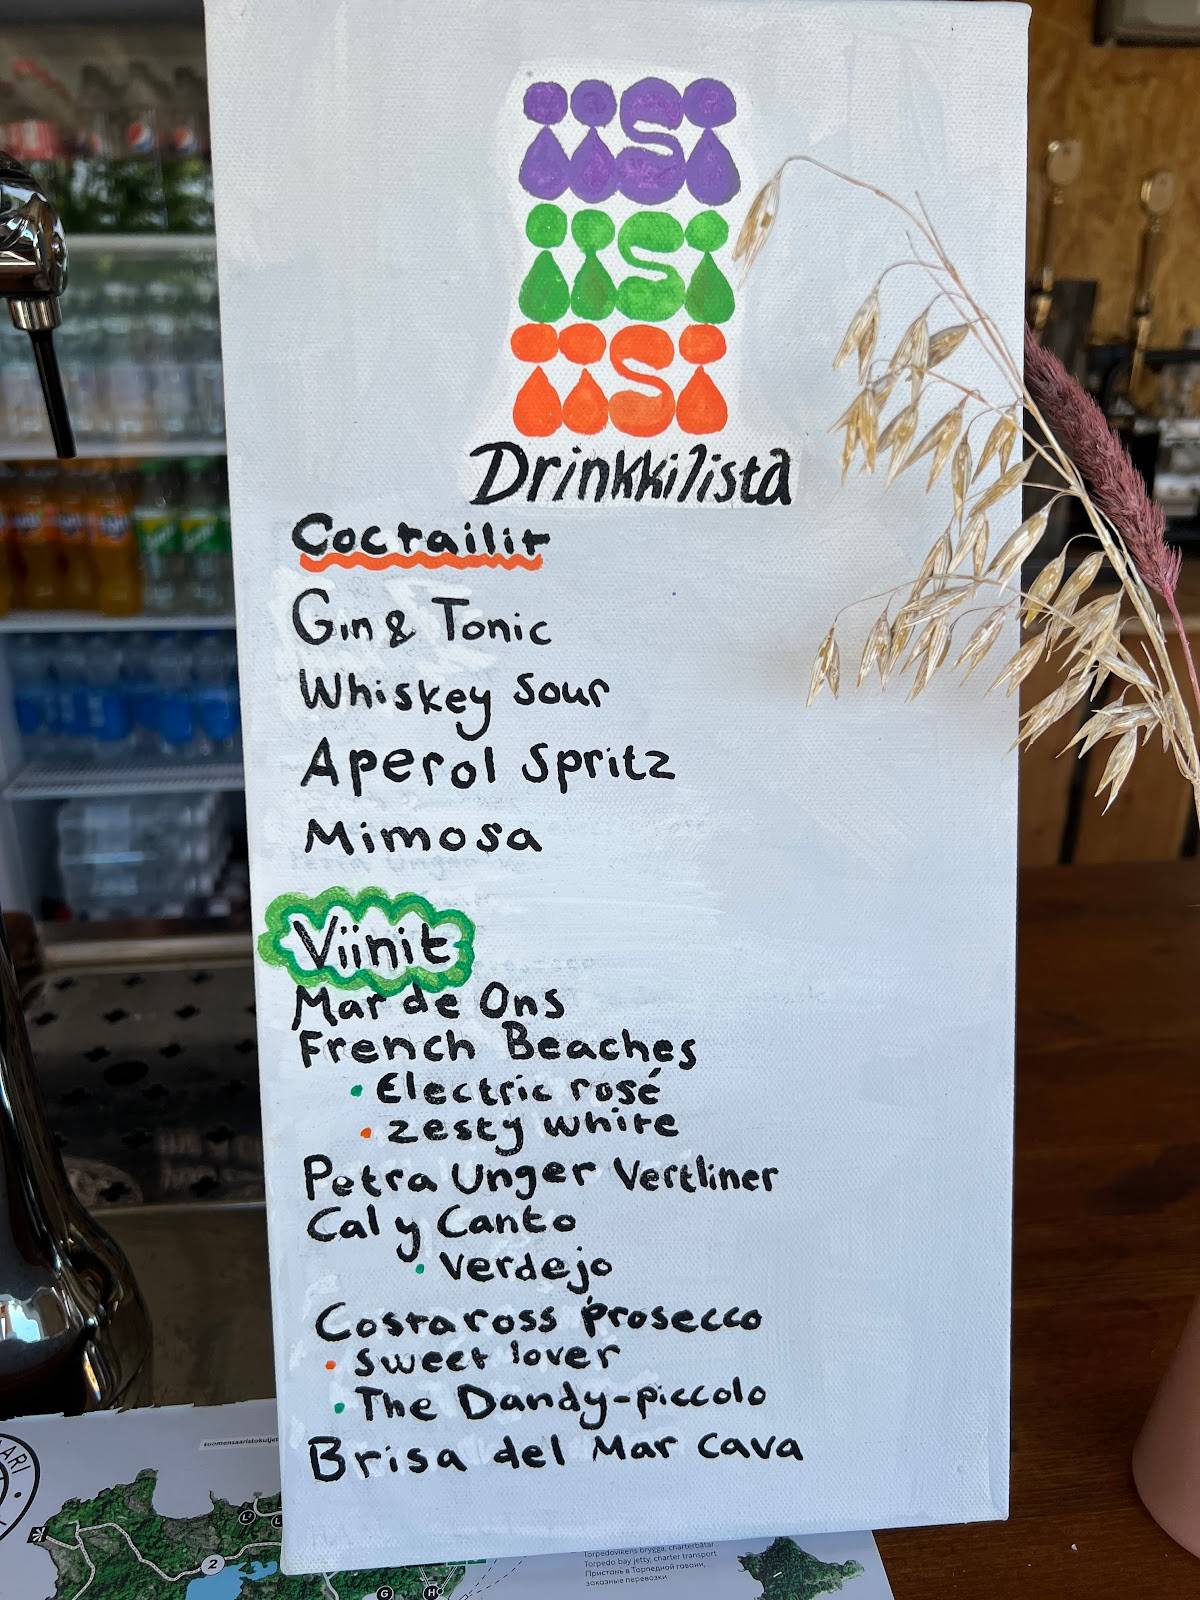 iisi
iisi
iisi
Drinkkilista
Coctailit
Gin & Tonic
Whiskey Sour
Aperol Spritz
Mimosa
Viinit
Mar de Ons
French Beaches
• Electric rosé
• zesty white
Petra Unger Vertliner
Cal y Canto
• Verdejo
Costaross prosecco
• sweet lover
• The Dandy-piccolo
Brisa del Mar cava
2
G
H
Torpedovikens brygga, charterbåtar
Torpedo bay jetty, charter transport
Пристань в Торпедной гавани,
заказные перевозки